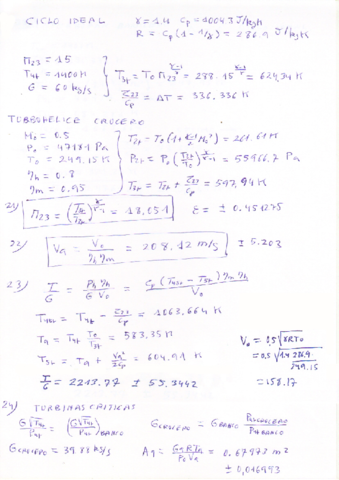 CICLO IDEAL γ=1.4 Cp=1004.3 J/kgK
R = Cp(1-1/γ) = 286.9 J/kgK
Π23 = 15
T4t = 1400 K
G = 60 kg/s
T3t = T0 Π23^(γ-1/γ) = 288.15 = 624,34 K
τ23/cp = ΔT = 336.336 K
TURBOHELICE CRUCERO
M0 = 0.5
P0 = 47181 Pa
T0 = 249.15 K
ηh = 0.8
ηm = 0.95
T2t = T0(1+γ-1/2 M0²) = 261.61 K
P2t = P0(T2t/T0)^(γ/γ-1) = 55966.7 Pa
T3t = T2t + τ23/cp = 597,94 K
21) Π23 = (T3t/T2t)^(γ/γ-1) = 18,051 ε = ± 0.451275
22) V9 = V0/ηh ηm = 208.12 m/s ± 5.203
23) T/G = Ph ηh/G V0 = Cp(T45t - T5t) ηm ηh/V0
T45t = T4t - τ23/cp = 1063,664 K
T9 = T4t T0/T3t = 583,35 K
T5t = T9 + V9²/2cp = 604,91 K
T/G = 2213.77 ± 55,3442
V0 = 0,5 √γRT0
= 0.5 √1.4 286.9
249.15
= 158.17
24) TURBINAS CRITICAS
(G√T4t/P4t) = (G√T4t/P4t)BANCO
GCRUCERO = GBANCO P4tCRUCERO/P4tBANCO
GCRUCERO = 39.83 kg/s A9 = G9RT9/P0V9 = 0.67972 m²
± 0,016993